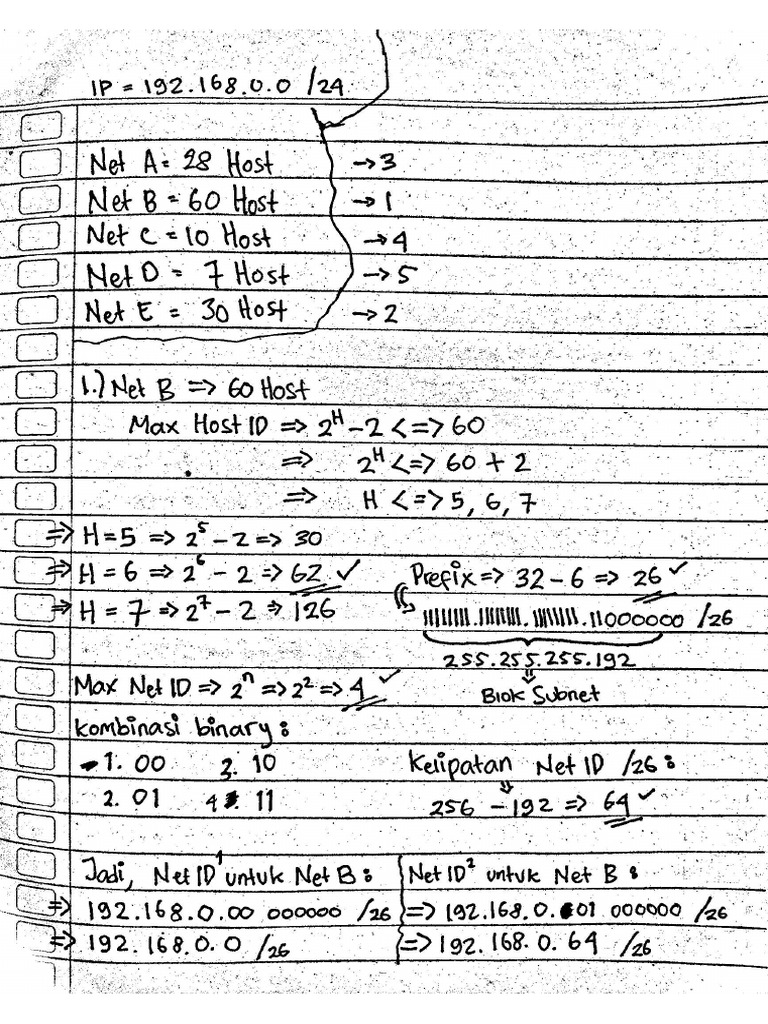 IP = 192.168.0.0 /24
Net A = 28 Host → 3
Net B = 60 Host → 1
Net C = 10 Host → 4
Net D = 7 Host → 5
Net E = 30 Host → 2
1.) Net B => 60 Host
Max Host ID => 2^H - 2 <=> 60
=> 2^H <=> 60 + 2
=> H <=> 5, 6, 7
=> H = 5 => 2^5 - 2 => 30
=> H = 6 => 2^6 - 2 => 62 ✓ Prefix => 32 - 6 => 26 ✓
=> H = 7 => 2^7 - 2 => 126 11111111.11111111.11111111.11000000 /26
255.255.255.192
Max Net ID => 2^n => 2^2 => 4 ✓ Blok Subnet
Kombinasi binary :
1. 00 3. 10 Kelipatan Net ID /26 :
2. 01 4. 11 256 - 192 => 64 ✓
Jadi, Net ID^1 untuk Net B : Net ID^2 untuk Net B :
=> 192.168.0.00 000000 /26 => 192.168.0.01 000000 /26
=> 192.168.0.0 /26 => 192.168.0.64 /26